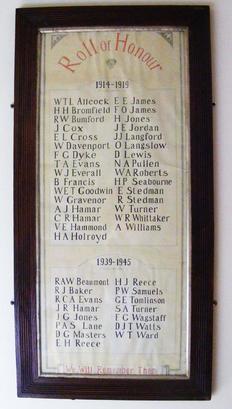 Roll of Honour
1914-1919
WTL Allcock
H H Bromfield
RW Bumford
J Cox
E L Cross
W Davenport
F G Dyke
T A Evans
W J Everall
B Francis
WET Goodwin
W Gravenor
A J Hamar
C R Hamar
V E Hammond
H A Holroyd
E E James
F O James
H Jones
J E Jordan
J J Langford
O Langslow
D Lewis
N A Pullen
W A Roberts
H P Seabourne
E Stedman
R Stedman
W Turner
W R Whittaker
A Williams
1939-1945
RAW Beaumont
R J Baker
R C A Evans
J R Hamar
J G Jones
P A S Lane
D G Masters
E H Reece
H J Reece
P W Samuels
G E Tomlinson
S A Turner
F G Wagstaff
D J T Watts
W T Ward
We Will Remember Them